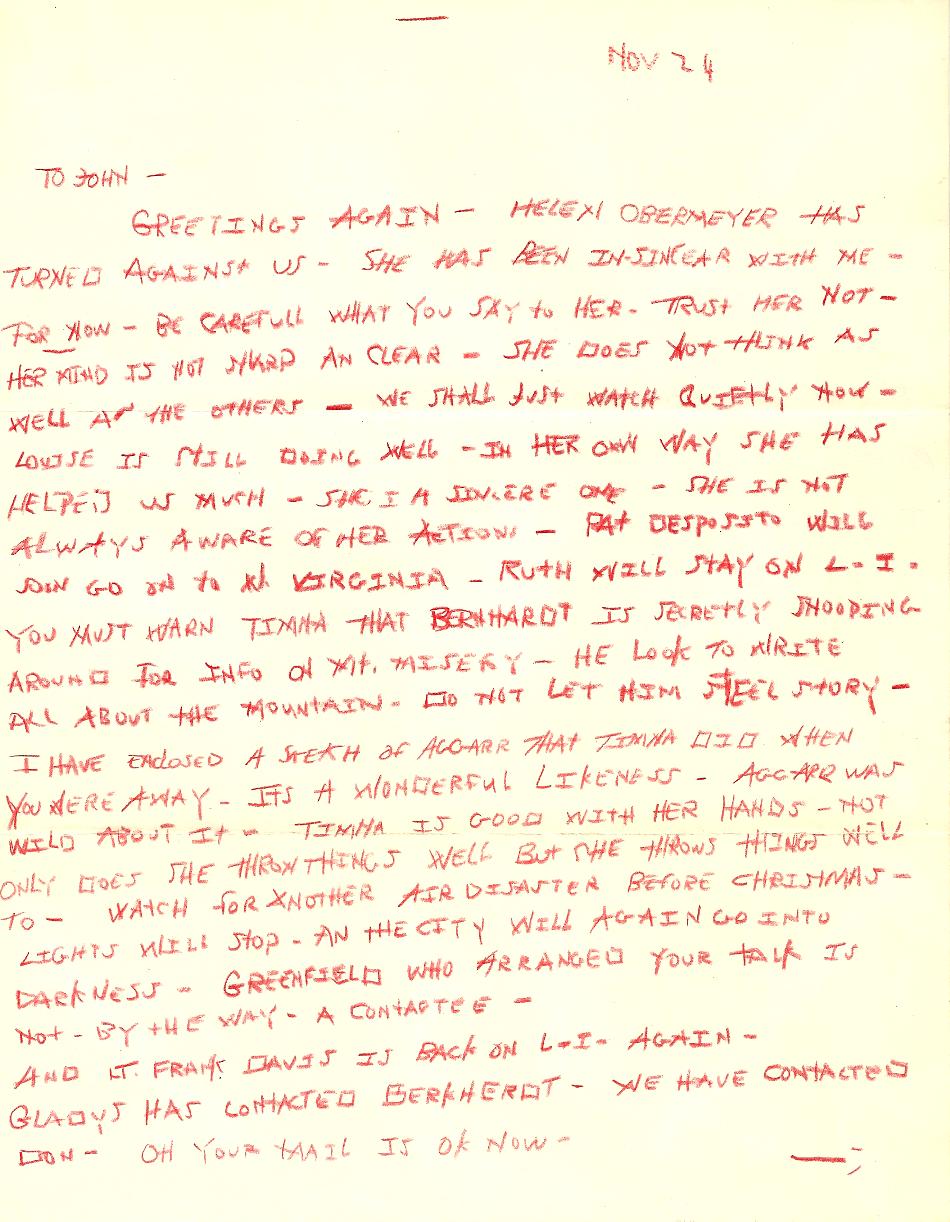 NOV 24
TO JOHN —
GREETINGS AGAIN — HELEN OBERMEYER HAS
TURNED AGAINST US - SHE HAS BEEN IN-SINCEAR WITH ME -
FOR NOW - BE CAREFULL WHAT YOU SAY to HER - TRUST HER NOT -
HER MIND IS NOT SHARP AN CLEAR - SHE DOES NOT THINK AS
WELL AS THE OTHERS — WE SHALL JUST WATCH QUIETLY NOW -
LOUISE IS STILL DOING WELL - IN HER OWN WAY SHE HAS
HELPED US MUCH - SHE I A SINCERE ONE - SHE IS NOT
ALWAYS AWARE OF HER ACTIONS — PAT DESPOSITO WILL
SOON GO ON TO W. VIRGINIA - RUTH WILL STAY ON L-I.
YOU MUST WARN TIMNA THAT BERNHARDT IS SECRETLY SNOOPING
AROUND FOR INFO ON Mt. MISERY - HE LOOK TO WRITE
ALL ABOUT THE MOUNTAIN - DO NOT LET HIM STEEL STORY -
I HAVE ENCLOSED A SKEKH OF AGGARR THAT TIMNA DID WHEN
YOU WERE AWAY - ITS A WONDERFUL LIKENESS - AGGARR WAS
WILD ABOUT IT - TIMNA IS GOOD WITH HER HANDS - NOT
ONLY DOES SHE THROW THINGS WELL BUT SHE THROWS THINGS WELL
TO - WATCH FOR ANOTHER AIR DISASTER BEFORE CHRISTMAS -
LIGHTS WILL STOP - AN THE CITY WILL AGAIN GO INTO
DARKNESS - GREENFIELD WHO ARRANGED YOUR TALK IS
NOT - BY THE WAY - A CONTACTEE -
AND LT. FRANK DAVIS IS BACK ON L-I- AGAIN -
GLADYS HAS CONTACTED BERKHERDT - WE HAVE CONTACTED
DON - OH YOUR MAIL IS OK NOW -